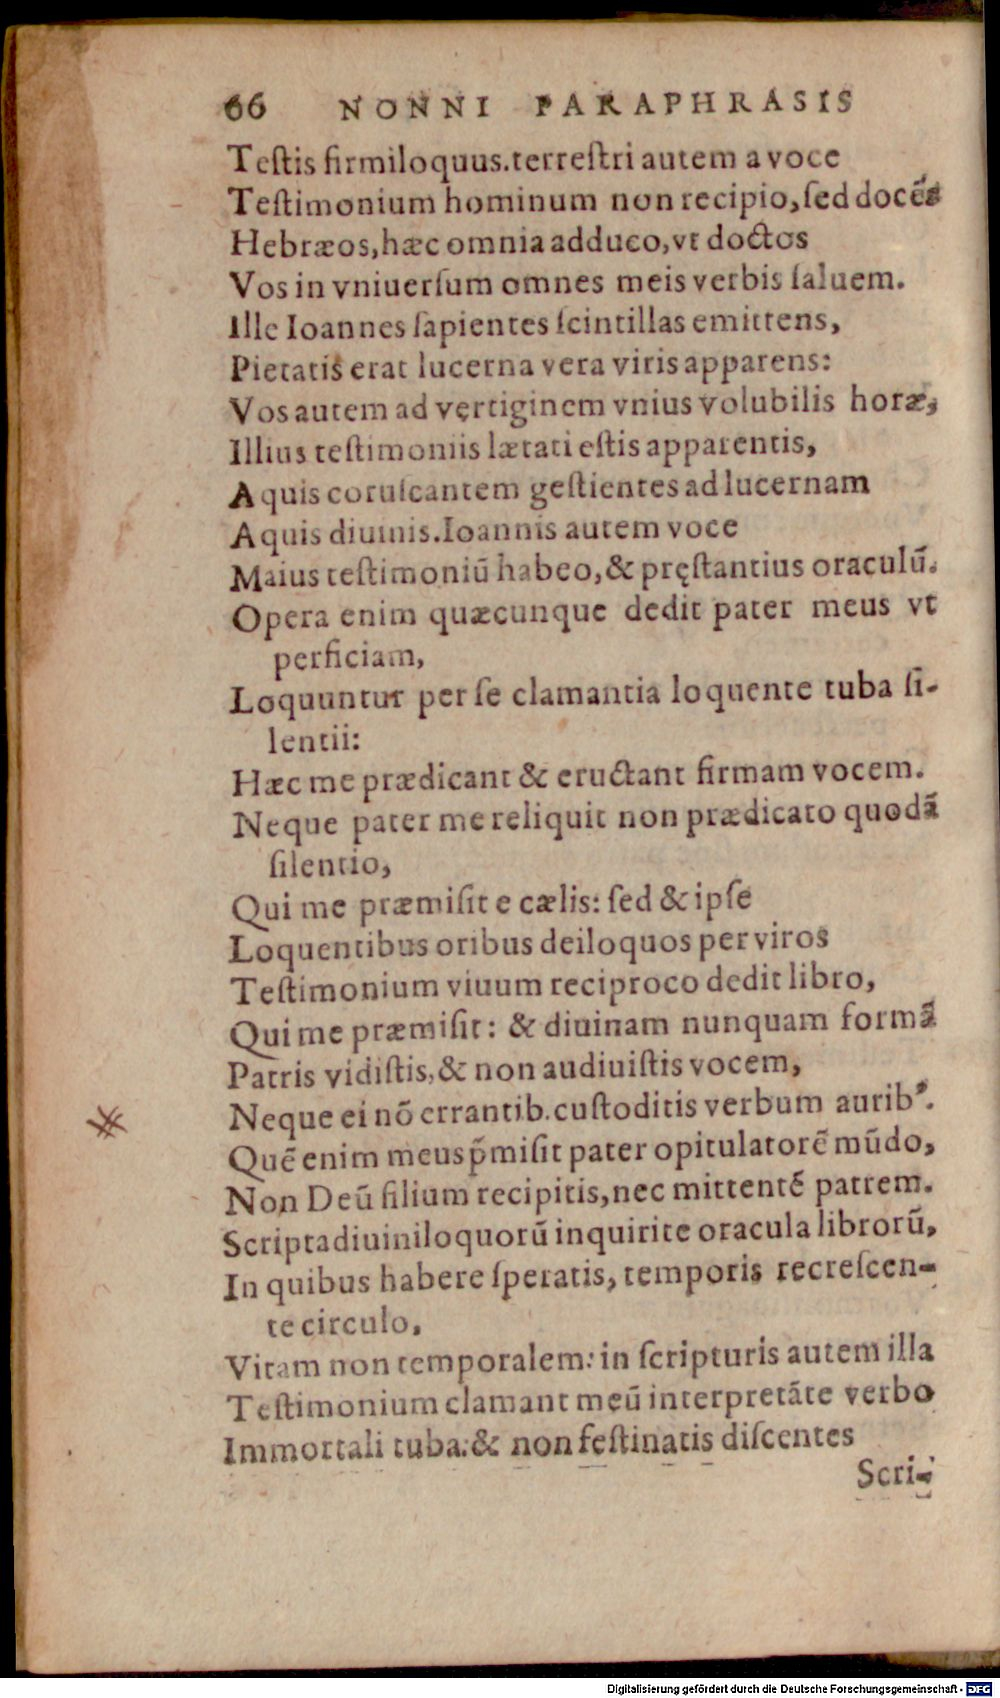 66 NONNI PARAPHRASIS
Teſtis firmiloquus.terreſtri autem a voce
Teſtimonium hominum non recipio,ſed docẽs
Hebræos,hæc omnia adduco,vt doctos
Vos in vniuerſum omnes meis verbis ſaluem.
Ille Ioannes ſapientes ſcintillas emittens,
Pietatis erat lucerna vera viris apparens:
Vos autem ad vęrtiginem vnius volubilis horæ,
Illius teſtimoniis lætati eſtis apparentis,
Aquis coruſcantem geſtientes ad lucernam
Aquis diuinis.Ioannis autem voce
Maius teſtimoniũ habeo,& pręſtantius oraculũ.
Opera enim quæcunque dedit pater meus vt
perficiam,
Loquuntur per ſe clamantia loquente tuba ſi-
lentii:
Hæc me prædicant & eructant firmam vocem.
Neque pater me reliquit non prædicato quodã
ſilentio,
Qui me præmiſit e cælis: ſed & ipſe
Loquentibus oribus deiloquos per viros
Teſtimonium viuum reciproco dedit libro,
Qui me præmiſit: & diuinam nunquam formã
Patris vidiſtis,& non audiuiſtis vocem,
Neque ei nõ errantib.cuſtoditis verbum aurib⁹.
Quẽ enim meus p̃miſit pater opitulatorẽ mũdo,
Non Deũ filium recipitis,nec mittentẽ patrem.
Scripta diuiniloquorũ inquirite oracula librorũ,
In quibus habere ſperatis, temporis recreſcen-
te circulo,
Vitam non temporalem: in ſcripturis autem illa
Teſtimonium clamant meũ interpretãte verbo
Immortali tuba:& non feſtinatis diſcentes
Scri-
Digitalisierung gefördert durch die Deutsche Forschungsgemeinschaft - DFG